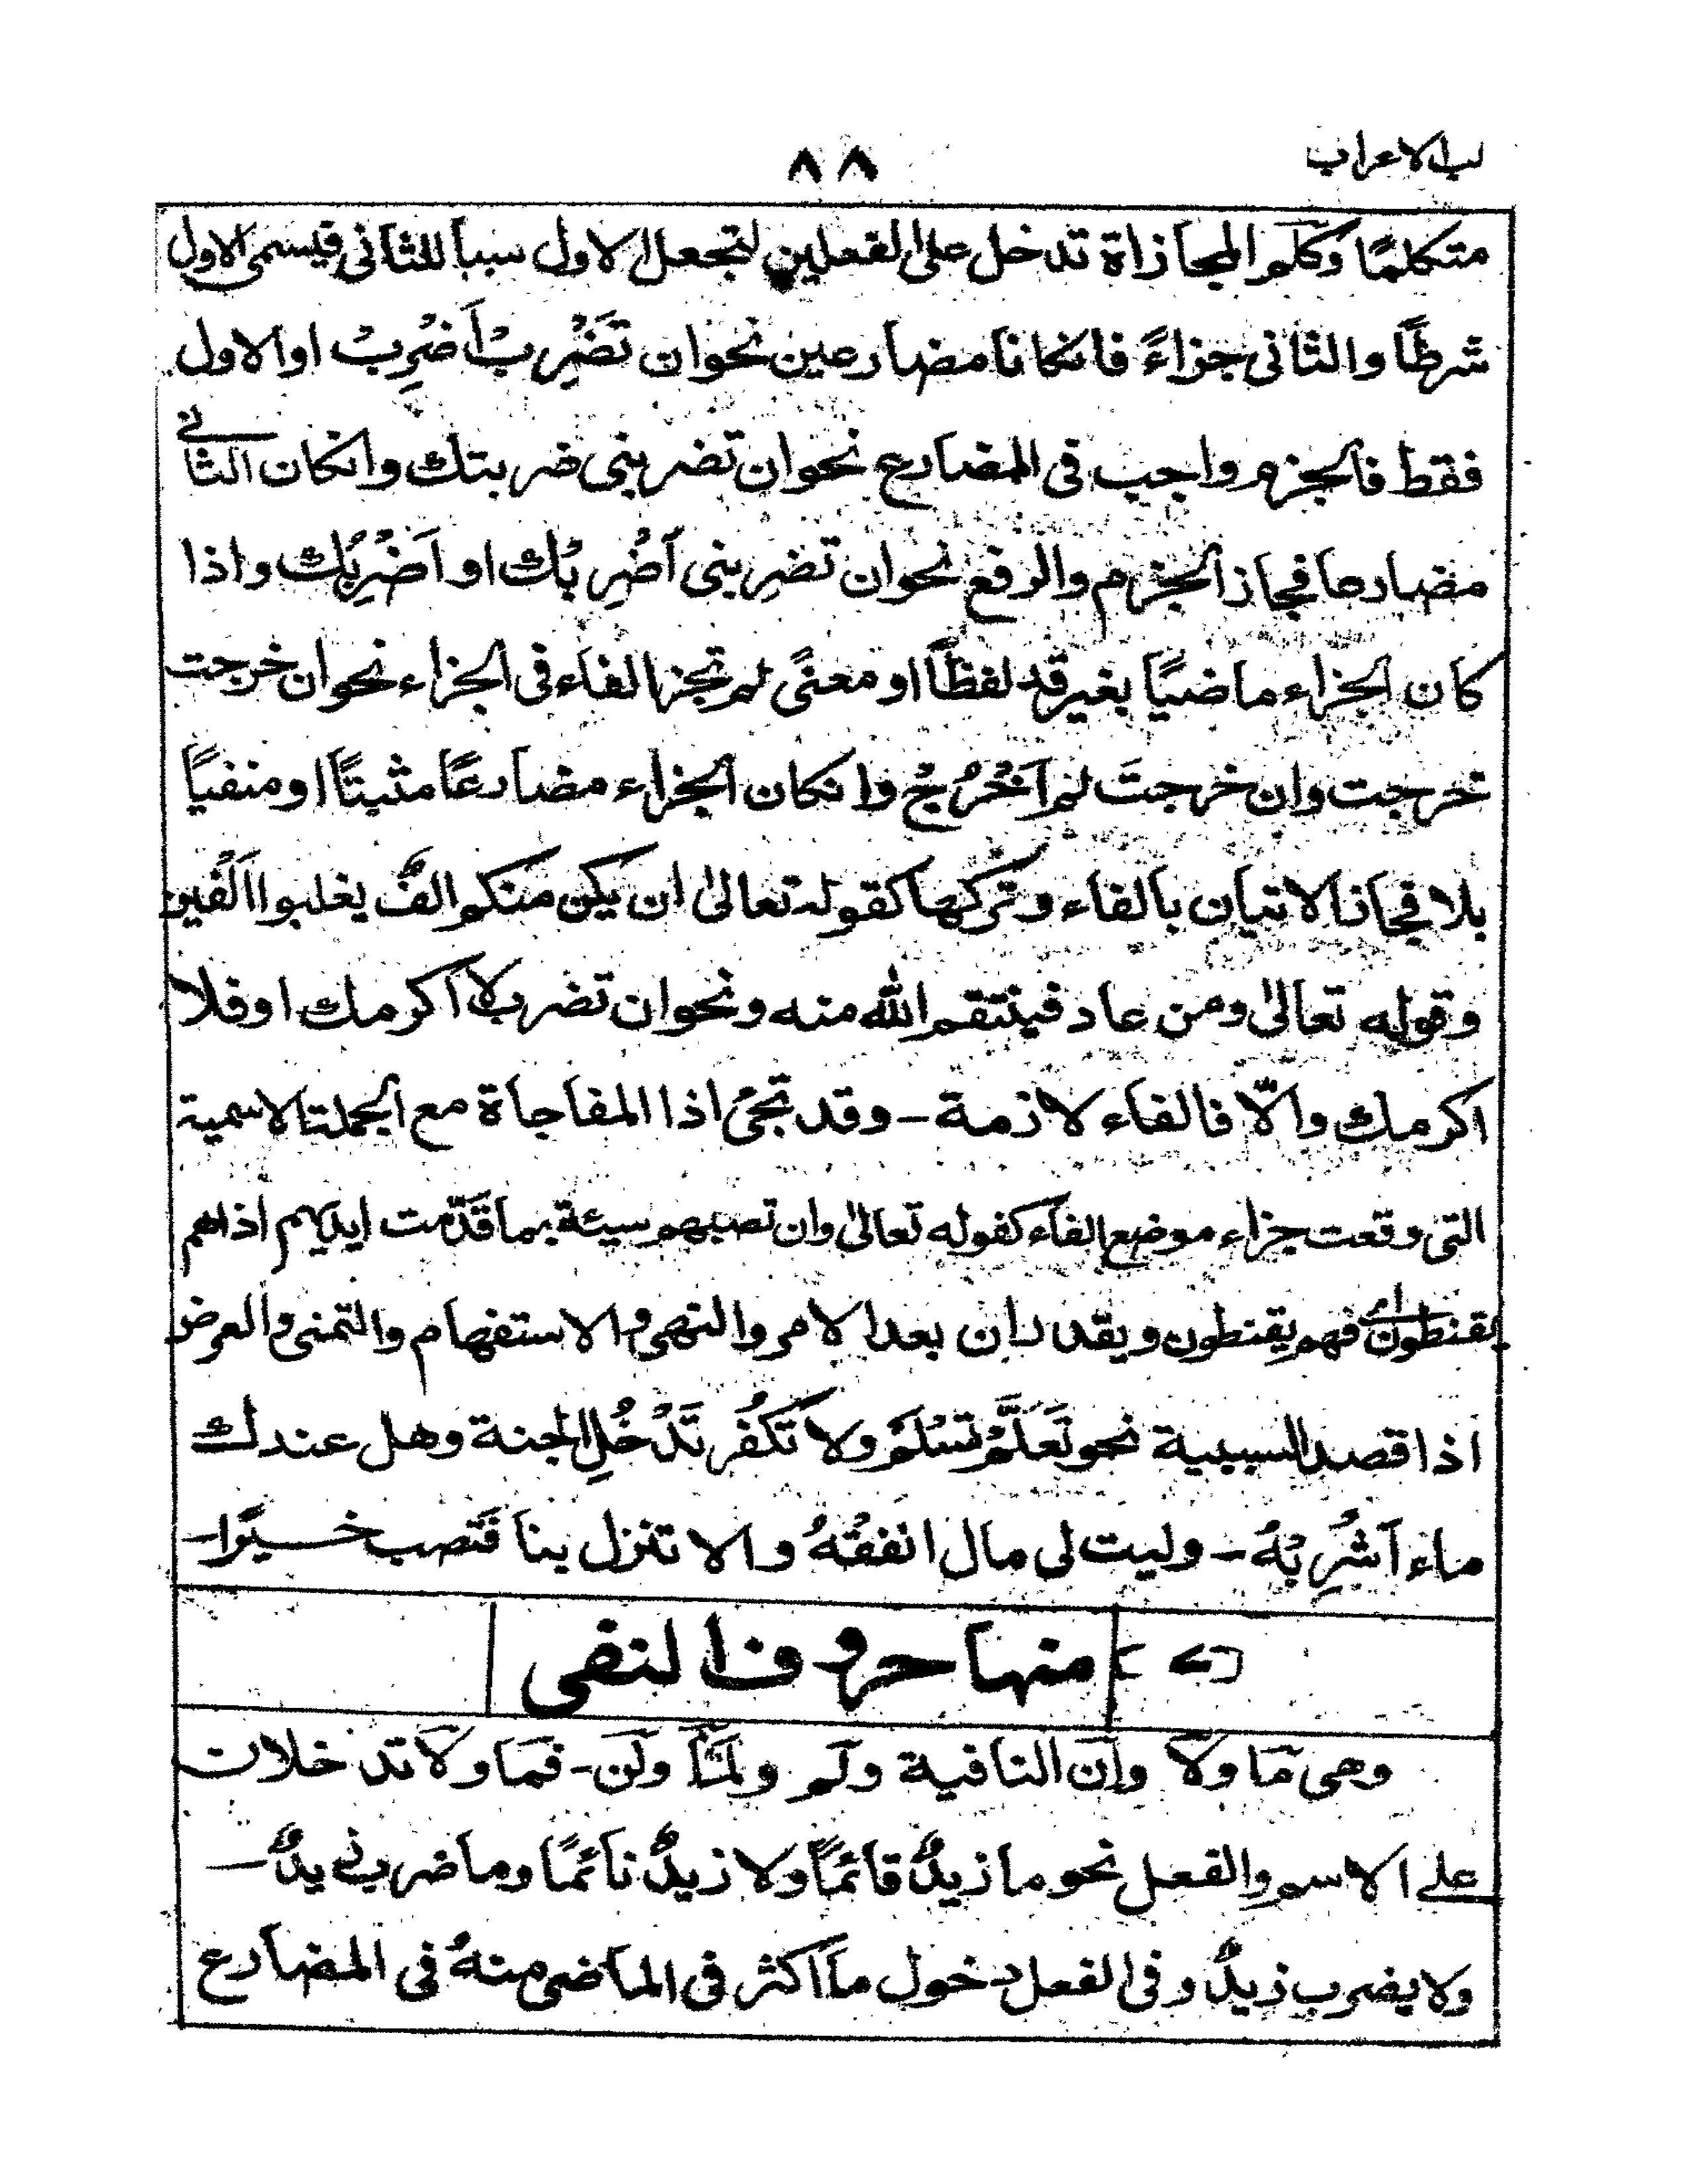 لب الاعراب
٨٨
متكلمًا وكلم المجازاة تدخل على الفعلين لتجعل الاول سببا للثانى فيسمى الاول
شرطًا والثانى جزاءً فانكانا مضارعين نحو ان تَضْرِبْ اَضْرِبْ او الاول
فقط فالجزم واجب فى المضارع نحو ان تضربنى ضربتك وانكان الثانى
مضارعا فجاز الجزم والرفع نحو ان تضربنى اَضْرِبْكَ او اَضْرِبُكَ واذا
كان الجزاء ماضيًا بغير قد لفظًا او معنًى لم تجز الفاء فى الجزاء نحو ان خرجت
خرجت وان خرجتَ لم اَخْرُجْ وانكان الجزاء مضارعًا مثبتًا او منفيًا
بلا فجاز الاتيان بالفاء وتركها كقوله تعالىٰ ان يكن منكم الفٌ يغلبوا اَلْفين
وقوله تعالىٰ ومن عاد فينتقم الله منه ونحو ان تضرب لا اكرمك او فلا
اكرمك والّا فالفاء لازمة - وقد تجئ اذا المفاجاة مع الجملة الاسمية
التى وقعت جزاء موضع الفاء كقوله تعالىٰ وان تصبهم سيئة بما قَدَّمت ايديهم اذا هم
يقنطون اى فهم يقنطون ويقدر ان بعد الامر والنهى والاستفهام والتمنى والعرض
اذا قصد السببية نحو تَعَلَّمْ تَسْلَمْ ولا تَكْفُرْ تَدْخُلِ الجنة وهل عندك
ماء اَشْرِبْهُ - وليت لى مال انفقْهُ والا تنزل بنا فَتصب خسيرًا -
منها حروف النفى
وهى مَا ولَا واِن النافية ولَم ولَمَّا ولَن - فمَا ولَا تدخلان
على الاسم والفعل نحو ما زيدٌ قائمًا ولا زيدٌ نائمًا وما ضرب زيدٌ -
ولا يضرب زيدٌ وفى الفعل دخول مَا اكثر فى الماضى منهُ فى المضارع